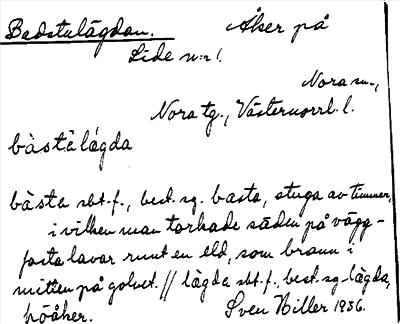 Badstulågdan. Åker på
Lide n:r 1.
Nora sn.,
Nora tg., Västernorrl. l.
bàstàlågda
bàsta sbt. f., best. sg. basta, stuga av timmer,
i vilken man torkade säden på vägg-
fasta lavar runt en eld, som brann i
mitten på golvet. // lågda sbt. f., best. sg. lågda,
höåker. Sven Hiller 1936.